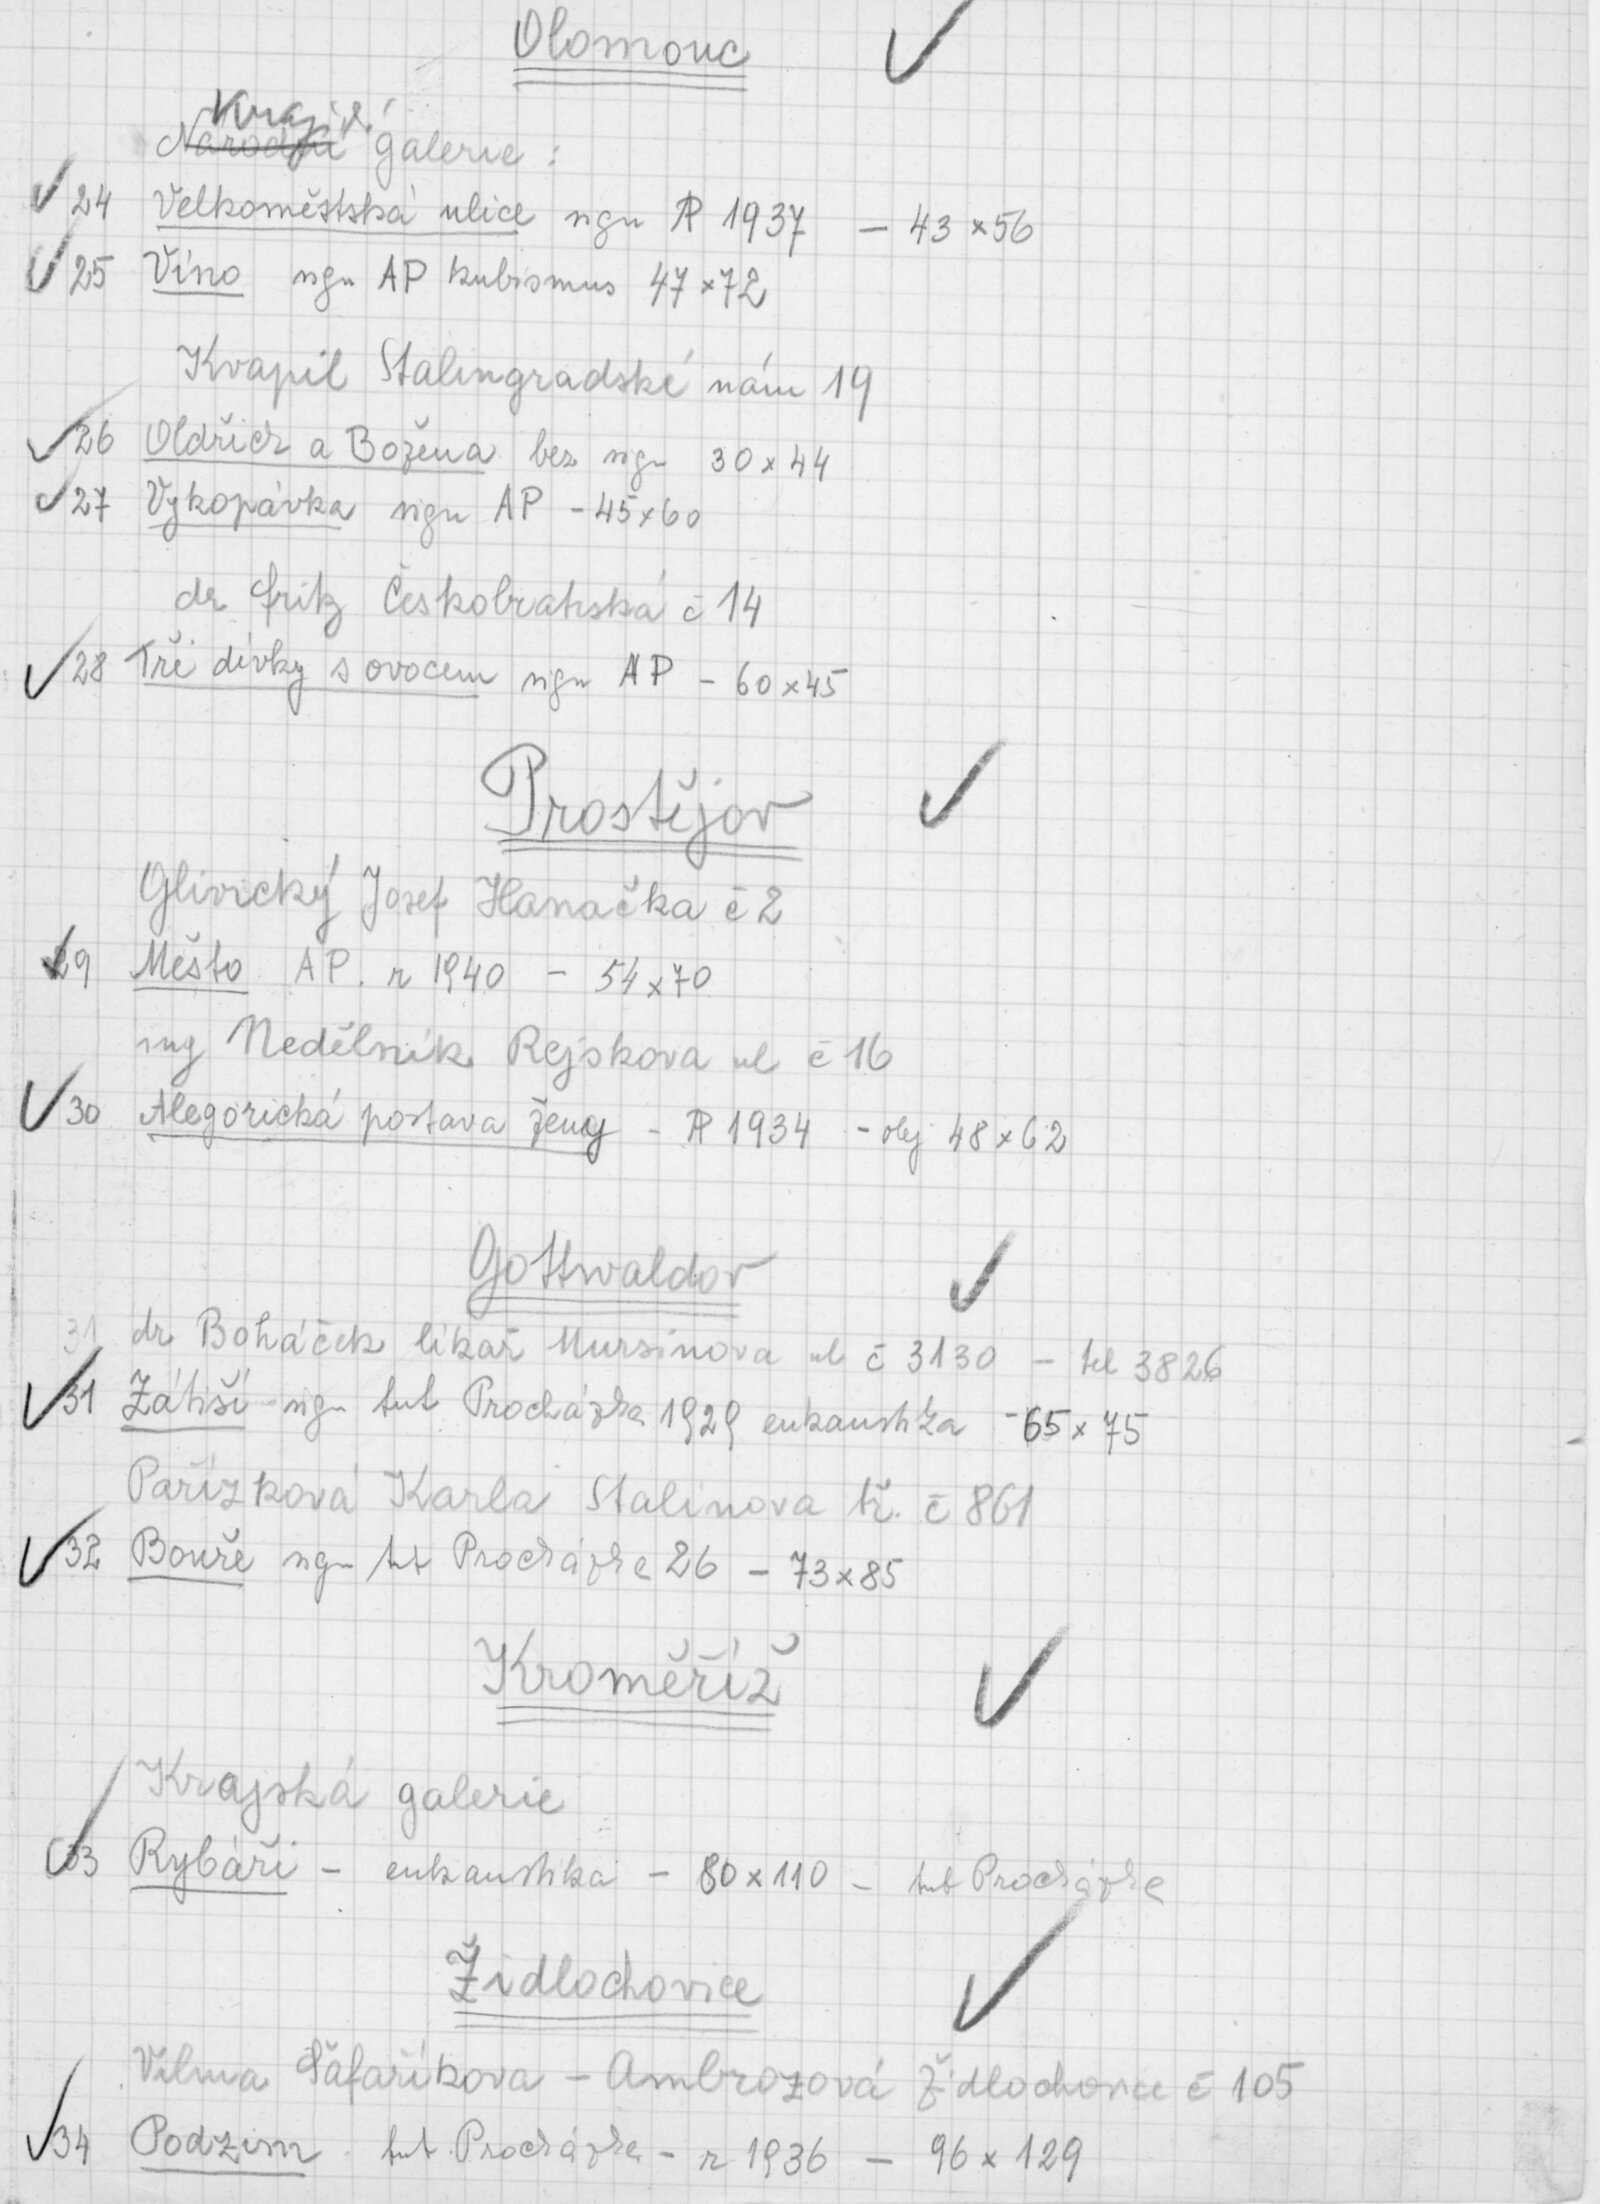 Olomouc
Krajsk.
Národní galerie :
24 Velkoměstská ulice sign AP 1937 – 43 x 56
25 Víno sign AP kubismus 47 x 72
Kvapil Stalingradské nám 19
26 Oldřich a Božena bez sign 30 x 44
27 Vykopávka sign AP – 45 x 60
dr Fritz Českobratrská č 14
28 Tři dívky s ovocem sign AP – 60 x 45
Prostějov
Glivický Josef Hanačka č 2
29 Město AP. r 1940 – 54 x 70
ing Nedělník Rejskova ul č 16
30 Alegorická postava ženy – AP 1934 – olej 48 x 62
Gottwaldov
31 dr Boháček lékař Mursinova ul č 3130 – tel 3826
31 Zátiší sign Ant Procházka 1929 enkaustika – 65 x 75
Pařízková Karla Stalinova tř. č 861
32 Bouře sign Ant Procházka 26 – 73 x 85
Kroměříž
Krajská galerie
33 Rybáři – enkaustika – 80 x 110 – Ant Procházka
Židlochovice
Vilma Šafaříkova – Ambrozová Židlochovice č 105
34 Podzim Ant. Procházka – r 1936 – 96 x 129